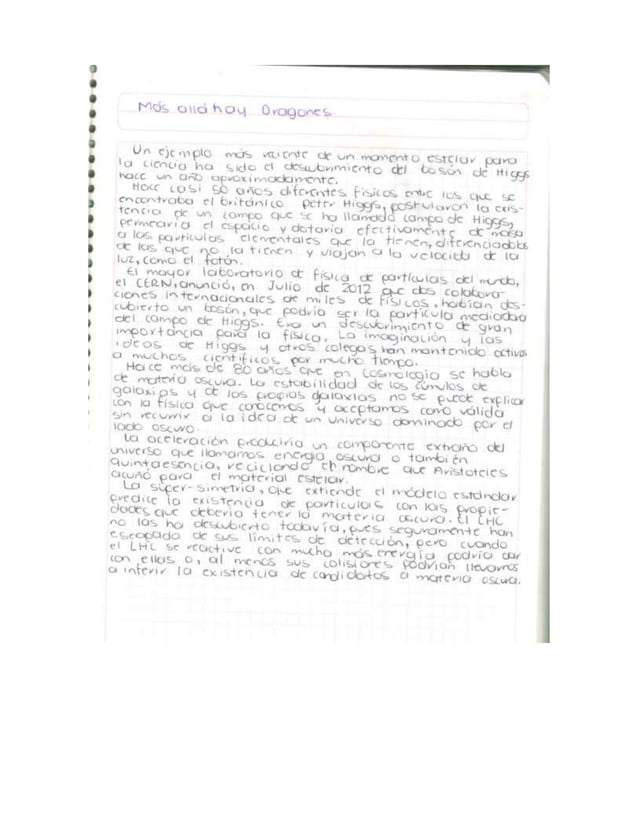 Más allá hay Dragones
Un ejemplo más reciente de un momento estelar para
la ciencia ha sido el descubrimiento del bosón de Higgs
hace un año aproximadamente.
Hace casi 50 años diferentes físicos entre los que se
encontraba el británico Peter Higgs, postularon la exis-
tencia de un campo que se ha llamado campo de Higgs,
permearia el espacio y dotaria efectivamente de masa
a las partículas elementales que la tienen, diferenciadolas
de las que no la tienen y viajan a la velocidad de la
luz, como el fotón.
El mayor laboratorio de física de partículas del mundo,
el CERN, anunció, en Julio de 2012 que dos colabora-
ciones internacionales de miles de físicos, habían des-
cubierto un bosón, que podría ser la partícula mediadora
del campo de Higgs. Era un descubrimiento de gran
importancia para la física. La imaginación y las
ideas de Higgs y otros colegas han mantenido activos
a muchos científicos por mucho tiempo.
Hace más de 80 años que en cosmología se habla
de materia oscura. La estabilidad de los cúmulos de
galaxias y de las propias galaxias no se puede explicar
con la física que conocemos y aceptamos como válida
sin recurrir a la idea de un universo dominado por el
lado oscuro.
La aceleración produciria un componente extraño del
universo que llamamos energía oscura o también
quintaesencia, reciclando el nombre que Aristoteles
acuñó para el material estelar.
La súper-simetria, que extiende el modelo estándar
predice la existencia de partículas con las propie-
dades que debería tener la materia oscura. El LHC
no las ha descubierto todavía, pues seguramente han
escapado de sus límites de detección, pero cuando
el LHC se reactive con mucha más energía podría dar
con ellas o, al menos sus colisiones podrían llevarnos
a inferir la existencia de candidatos a materia oscura.